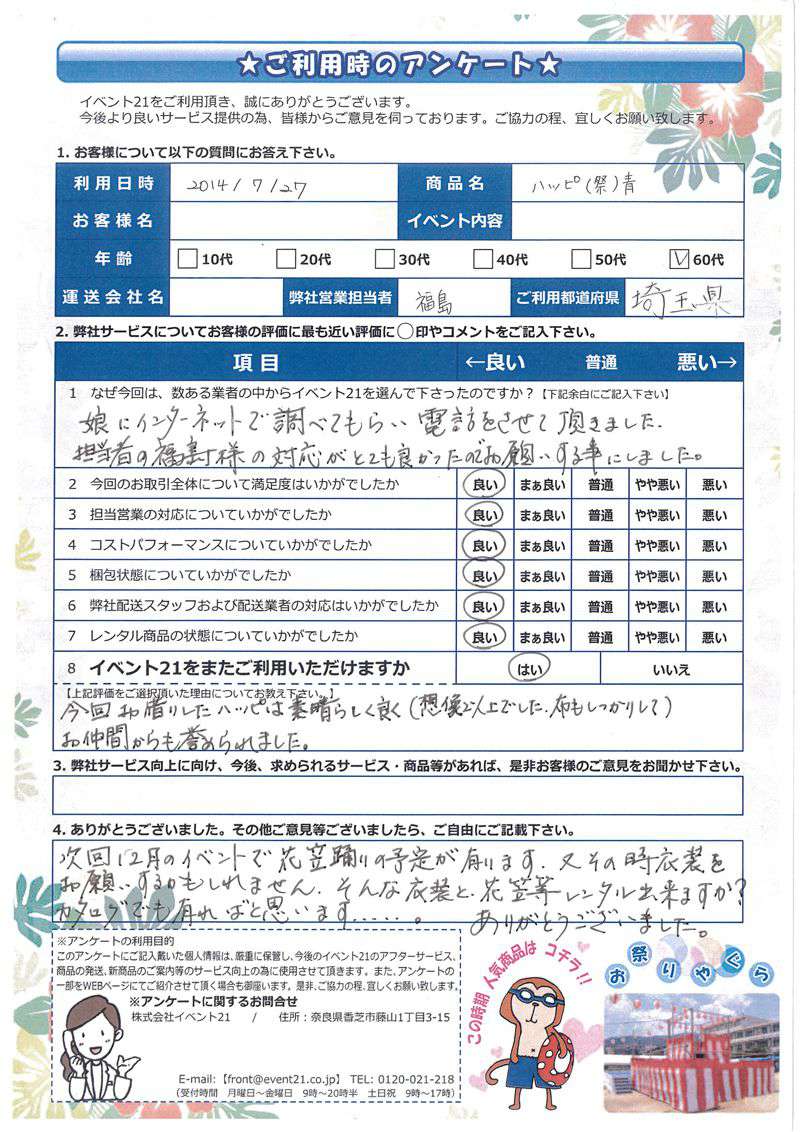 ★ご利用時のアンケート★
イベント21をご利用頂き、誠にありがとうございます。
今後より良いサービス提供の為、皆様からご意見を伺っております。ご協力の程、宜しくお願い致します。
1. お客様について以下の質問にお答え下さい。
利用日時 2014/7/27 商品名 ハッピ(祭)青
お客様名 イベント内容
年齢 10代 20代 30代 40代 50代 60代
運送会社名 弊社営業担当者 福島 ご利用都道府県 埼玉県
2. 弊社サービスについてお客様の評価に最も近い評価に○印やコメントをご記入下さい。
項目 ←良い 普通 悪い→
1 なぜ今回は、数ある業者の中からイベント21を選んで下さったのですか？【下記余白にご記入下さい】
娘にインターネットで調べてもらい電話をさせて頂きました.
担当者の福島様の対応がとても良かったのでお願いする事にしました。
2 今回のお取引全体について満足度はいかがでしたか 良い まぁ良い 普通 やや悪い 悪い
3 担当営業の対応についていかがでしたか 良い まぁ良い 普通 やや悪い 悪い
4 コストパフォーマンスについていかがでしたか 良い まぁ良い 普通 やや悪い 悪い
5 梱包状態についていかがでしたか 良い まぁ良い 普通 やや悪い 悪い
6 弊社配送スタッフおよび配送業者の対応はいかがでしたか 良い まぁ良い 普通 やや悪い 悪い
7 レンタル商品の状態についていかがでしたか 良い まぁ良い 普通 やや悪い 悪い
8 イベント21をまたご利用いただけますか はい いいえ
【上記評価をご選択頂いた理由についてお教え下さい。】
今回お借りしたハッピは素晴らしく良く(想像以上でした.布もしっかりして)
お仲間からも誉められました。
3. 弊社サービス向上に向け、今後、求められるサービス・商品等があれば、是非お客様のご意見をお聞かせ下さい。
4. ありがとうございました。その他ご意見等ございましたら、ご自由にご記載下さい。
次回12月のイベントで花笠踊りの予定が有ります.又その時衣装を
お願いするかもしれません.そんな衣装と.花笠等レンタル出来ますか?
カタログでも有ればと思います……。 ありがとうございました。
※アンケートの利用目的
このアンケートにご記入戴いた個人情報は、厳重に保管し、今後のイベント21のアフターサービス、
商品の発送、新商品のご案内等のサービス向上の為に使用させて頂きます。また、アンケートの
一部をWEBページにてご紹介させて頂く場合も御座います。是非、ご協力の程、宜しくお願い致します。
※アンケートに関するお問合せ
株式会社イベント21 / 住所：奈良県香芝市藤山1丁目3-15
E-mail:【front@event21.co.jp】 TEL: 0120-021-218
（受付時間 月曜日～金曜日 9時～20時半 土日祝 9時～17時）
この時期 人気商品は コチラ!!
お祭りやぐら